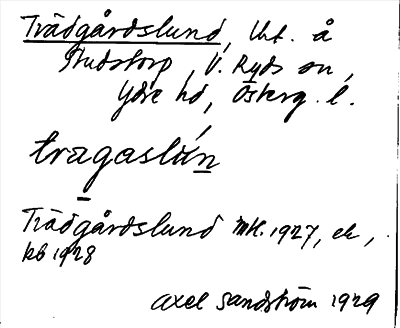 Trädgårdslund, lht. å
Studstorp, V. Ryds sn,
Ydre hd, Österg. l.
tragaslún
Trädgårdslund mtl. 1927, ek,
kb 1928
Axel Sandström 1929